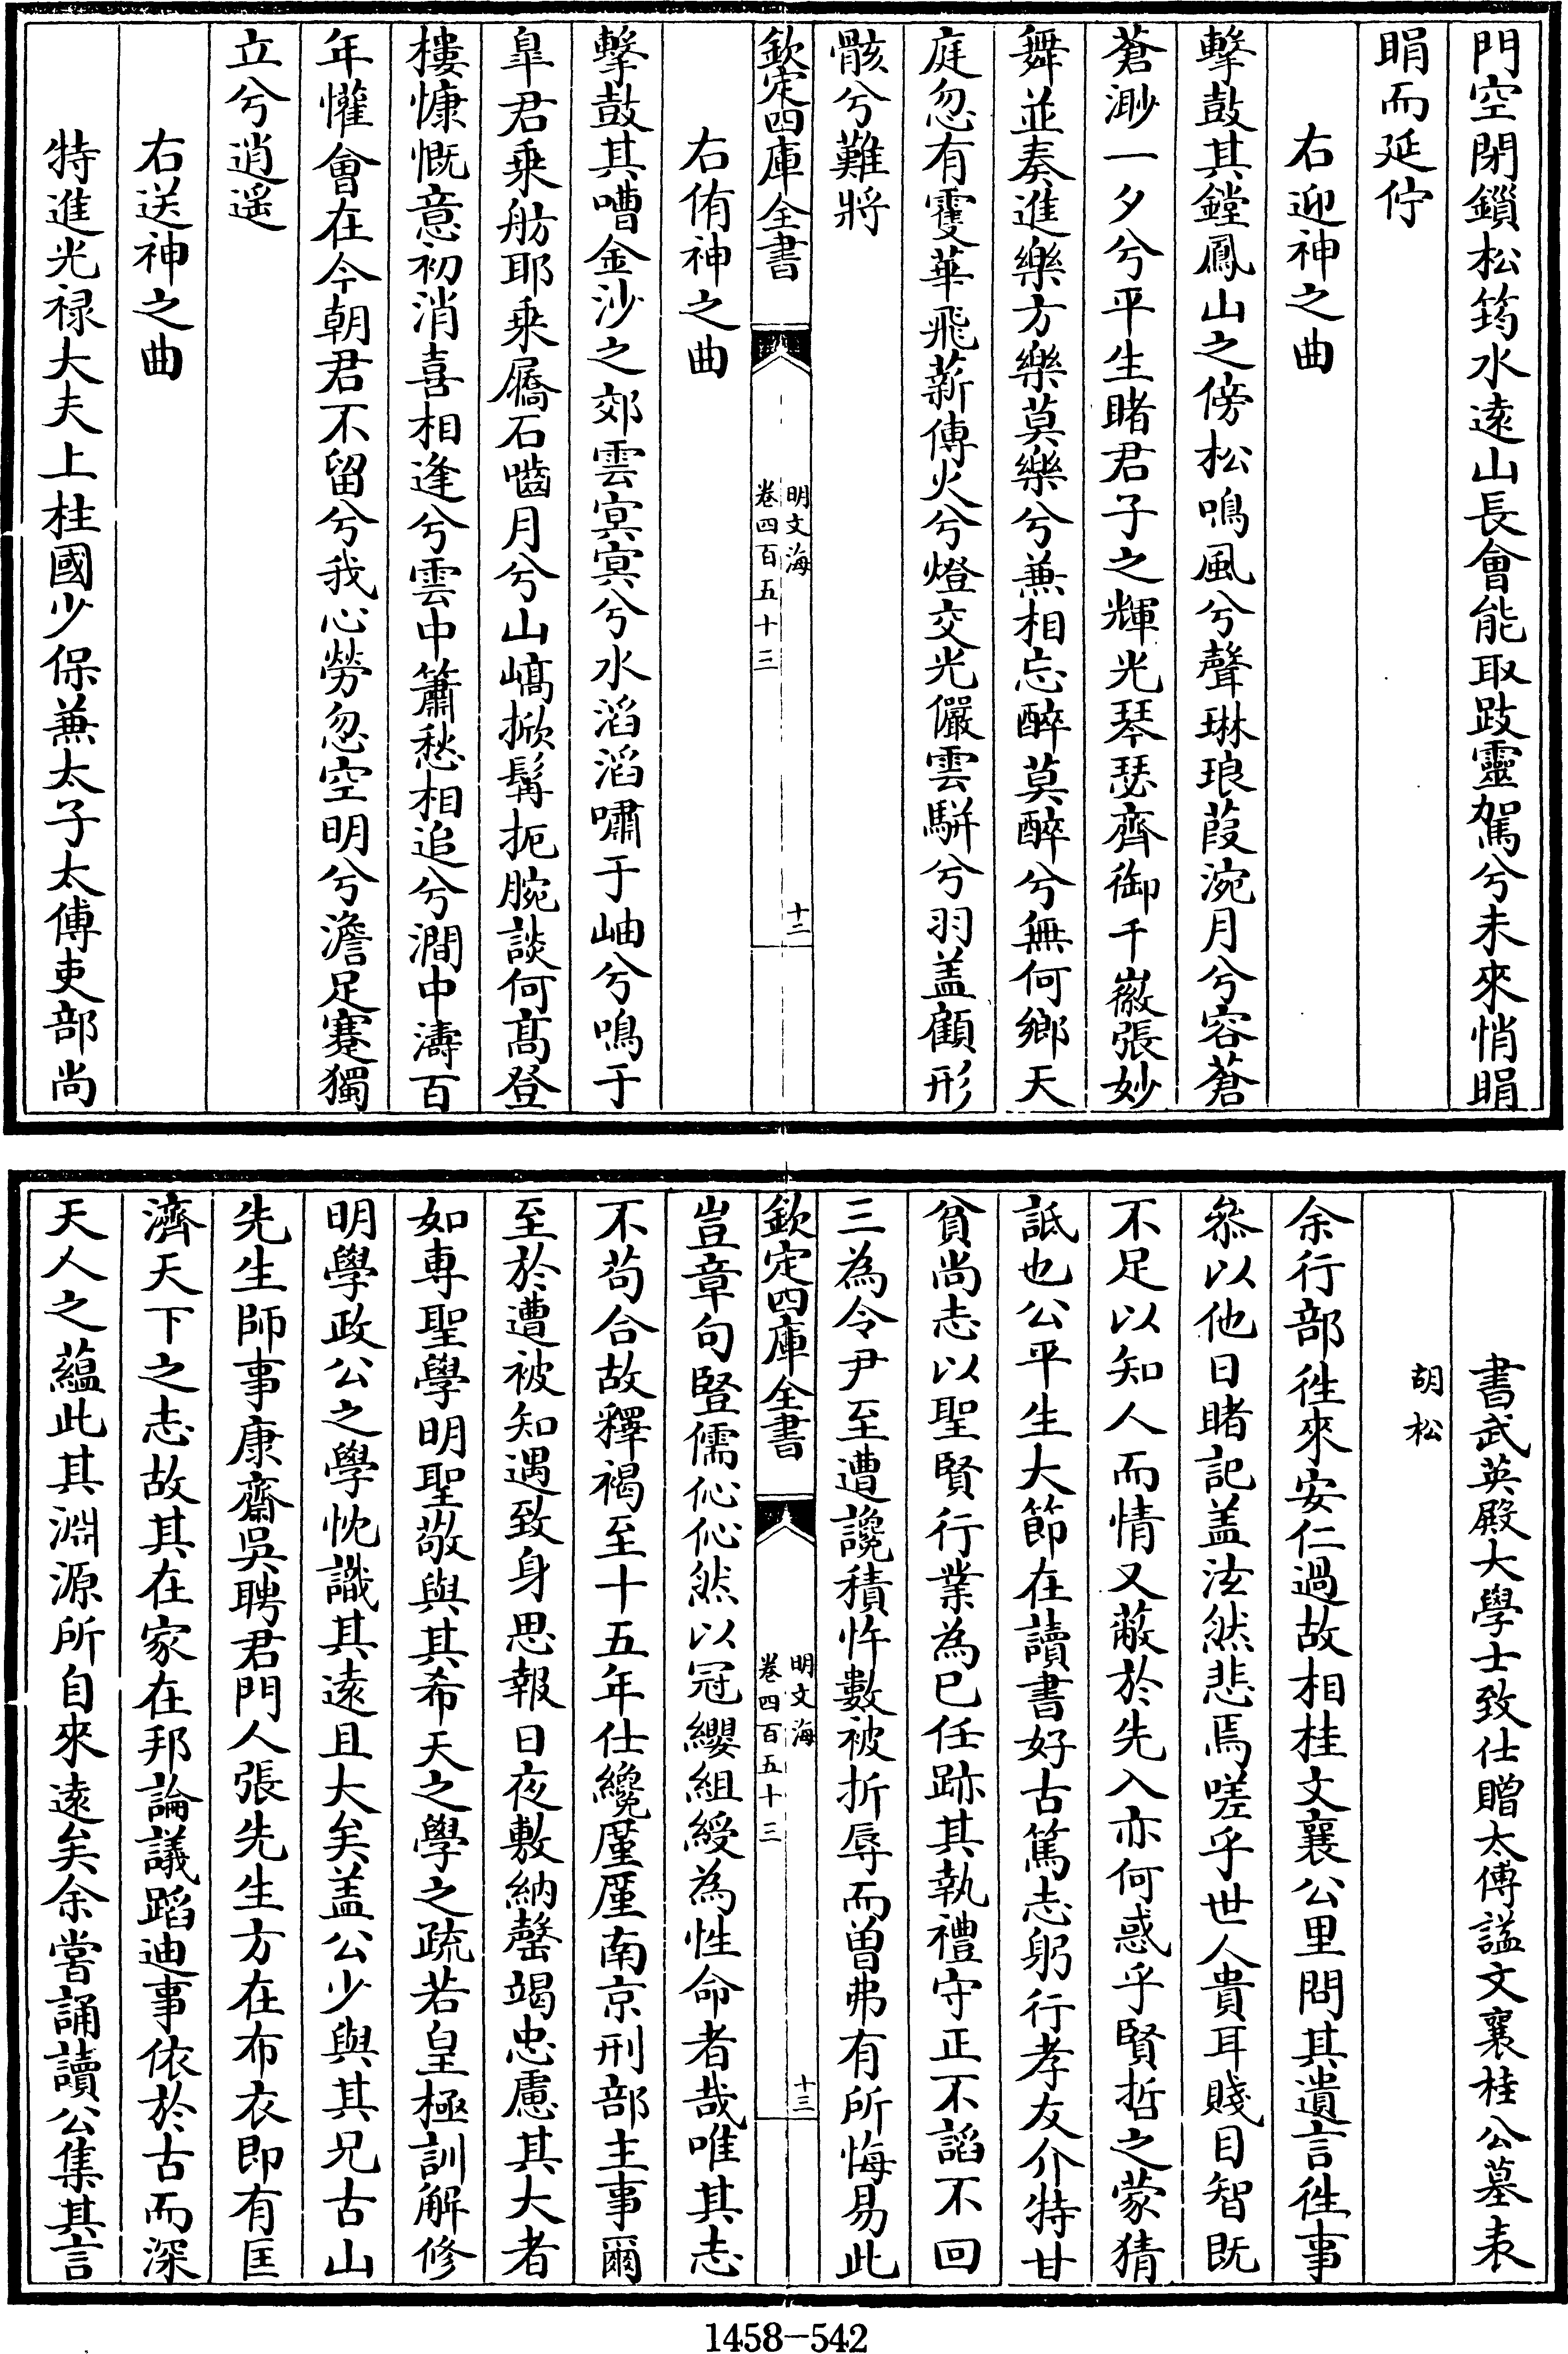 門空閉鎖松筠水遠山長會能取跂靈駕兮未來悄睊
睊而延佇
右迎神之曲
擊鼓其鏜鳳山之傍松鳴風兮聲琳琅葭涴月兮容蒼
蒼渺一夕兮平生睹君子之輝光琴瑟齊御千徽張妙
舞並奏進樂方樂莫樂兮兼相忘醉莫醉兮無何鄉天
庭忽有雙華飛薪傳火兮燈交光儼雲駢兮羽盖顧形
骸兮難將
欽定四庫全書
明文海
卷四百五十三
十二
右侑神之曲
擊鼓其嘈金沙之郊雲㝠㝠兮水滔滔嘯于岫兮鳴于
臯君乗舫耶乗屩石嚙月兮山嵪掀髯扼腕談何髙登
樓慷慨意初消喜相逢兮雲中簫愁相追兮澗中濤百
年懽會在今朝君不留兮我心勞忽空明兮澹足蹇獨
立兮逍遥
右送神之曲
特進光禄大夫上柱國少保兼太子太傅吏部尚
書武英殿大學士致仕贈太傅謚文襄桂公墓表
胡松
余行部徃來安仁過故相桂文襄公里問其遺言徃事
叅以他日睹記盖泫然悲焉嗟乎世人貴耳賤目智既
不足以知人而情又蔽於先入亦何惑乎賢哲之蒙猜
詆也公平生大節在讀書好古篤志躬行孝友介特甘
貧尚志以聖賢行業為已任跡其執禮守正不謟不回
三為令尹至遭讒積忤數被折辱而曽弗有所悔易此
欽定四庫全書
明文海
卷四百五十三
十三
豈章句豎儒伈伈然以冠纓組綬為性命者哉唯其志
不苟合故釋褐至十五年仕纔厪厪南京刑部主事爾
至於遭被知遇致身思報日夜敷納罄竭忠慮其大者
如専聖學明聖敬與其希天之學之疏若皇極訓解修
明學政公之學忱識其遠且大矣盖公少與其兄古山
先生師事康齋吳聘君門人張先生方在布衣即有匡
濟天下之志故其在家在邦論議蹈迪事依於古而深
天人之蘊此其淵源所自來遠矣余嘗誦讀公集其言
1458-542